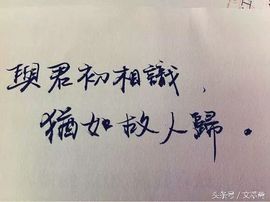 與君初相識，
猶如故人歸。
头条号／文芯斋